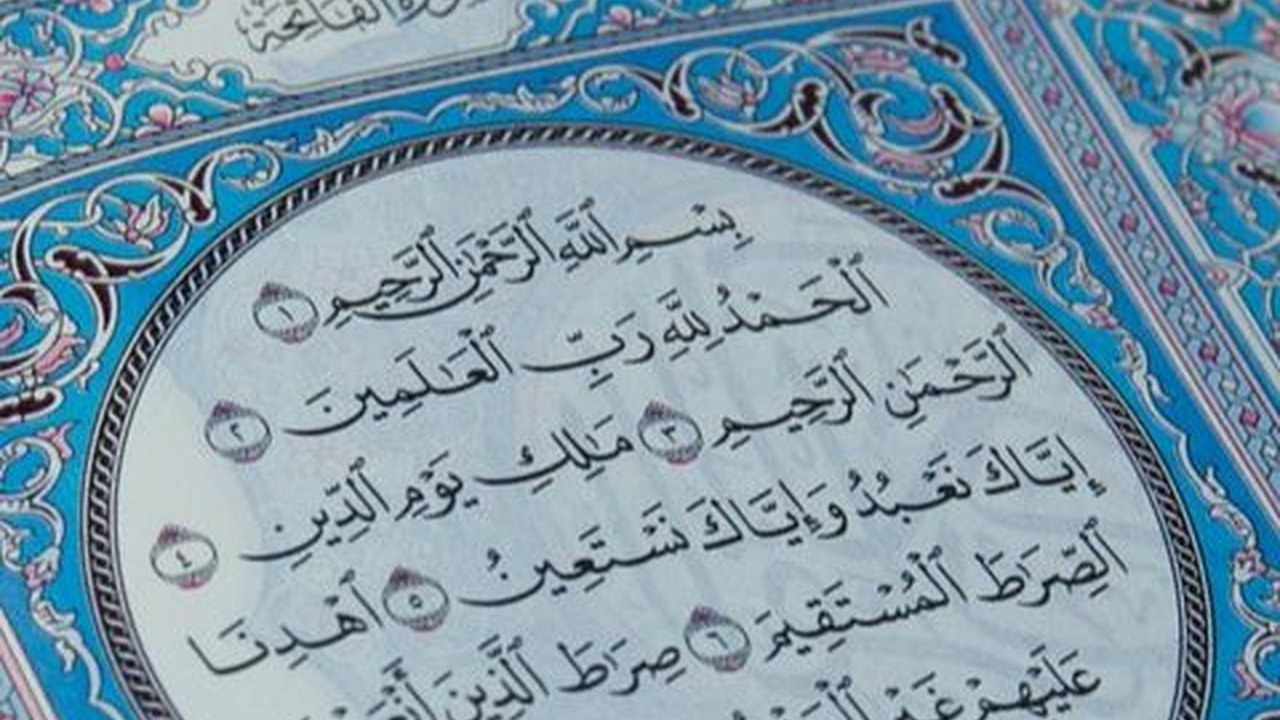 سورة الفاتحة
بِسْمِ ٱللَّهِ ٱلرَّحْمَٰنِ ٱلرَّحِيمِ ١
ٱلْحَمْدُ لِلَّهِ رَبِّ ٱلْعَٰلَمِينَ ٢
ٱلرَّحْمَٰنِ ٱلرَّحِيمِ ٣ مَٰلِكِ يَوْمِ ٱلدِّينِ ٤
إِيَّاكَ نَعْبُدُ وَإِيَّاكَ نَسْتَعِينُ ٥ ٱهْدِنَا
ٱلصِّرَٰطَ ٱلْمُسْتَقِيمَ ٦ صِرَٰطَ ٱلَّذِينَ
عَلَيْهِمْ غَيْرِ